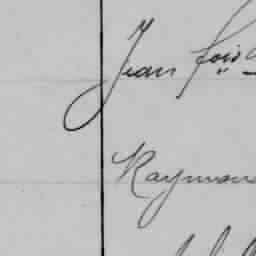 Jean fois
Raymon